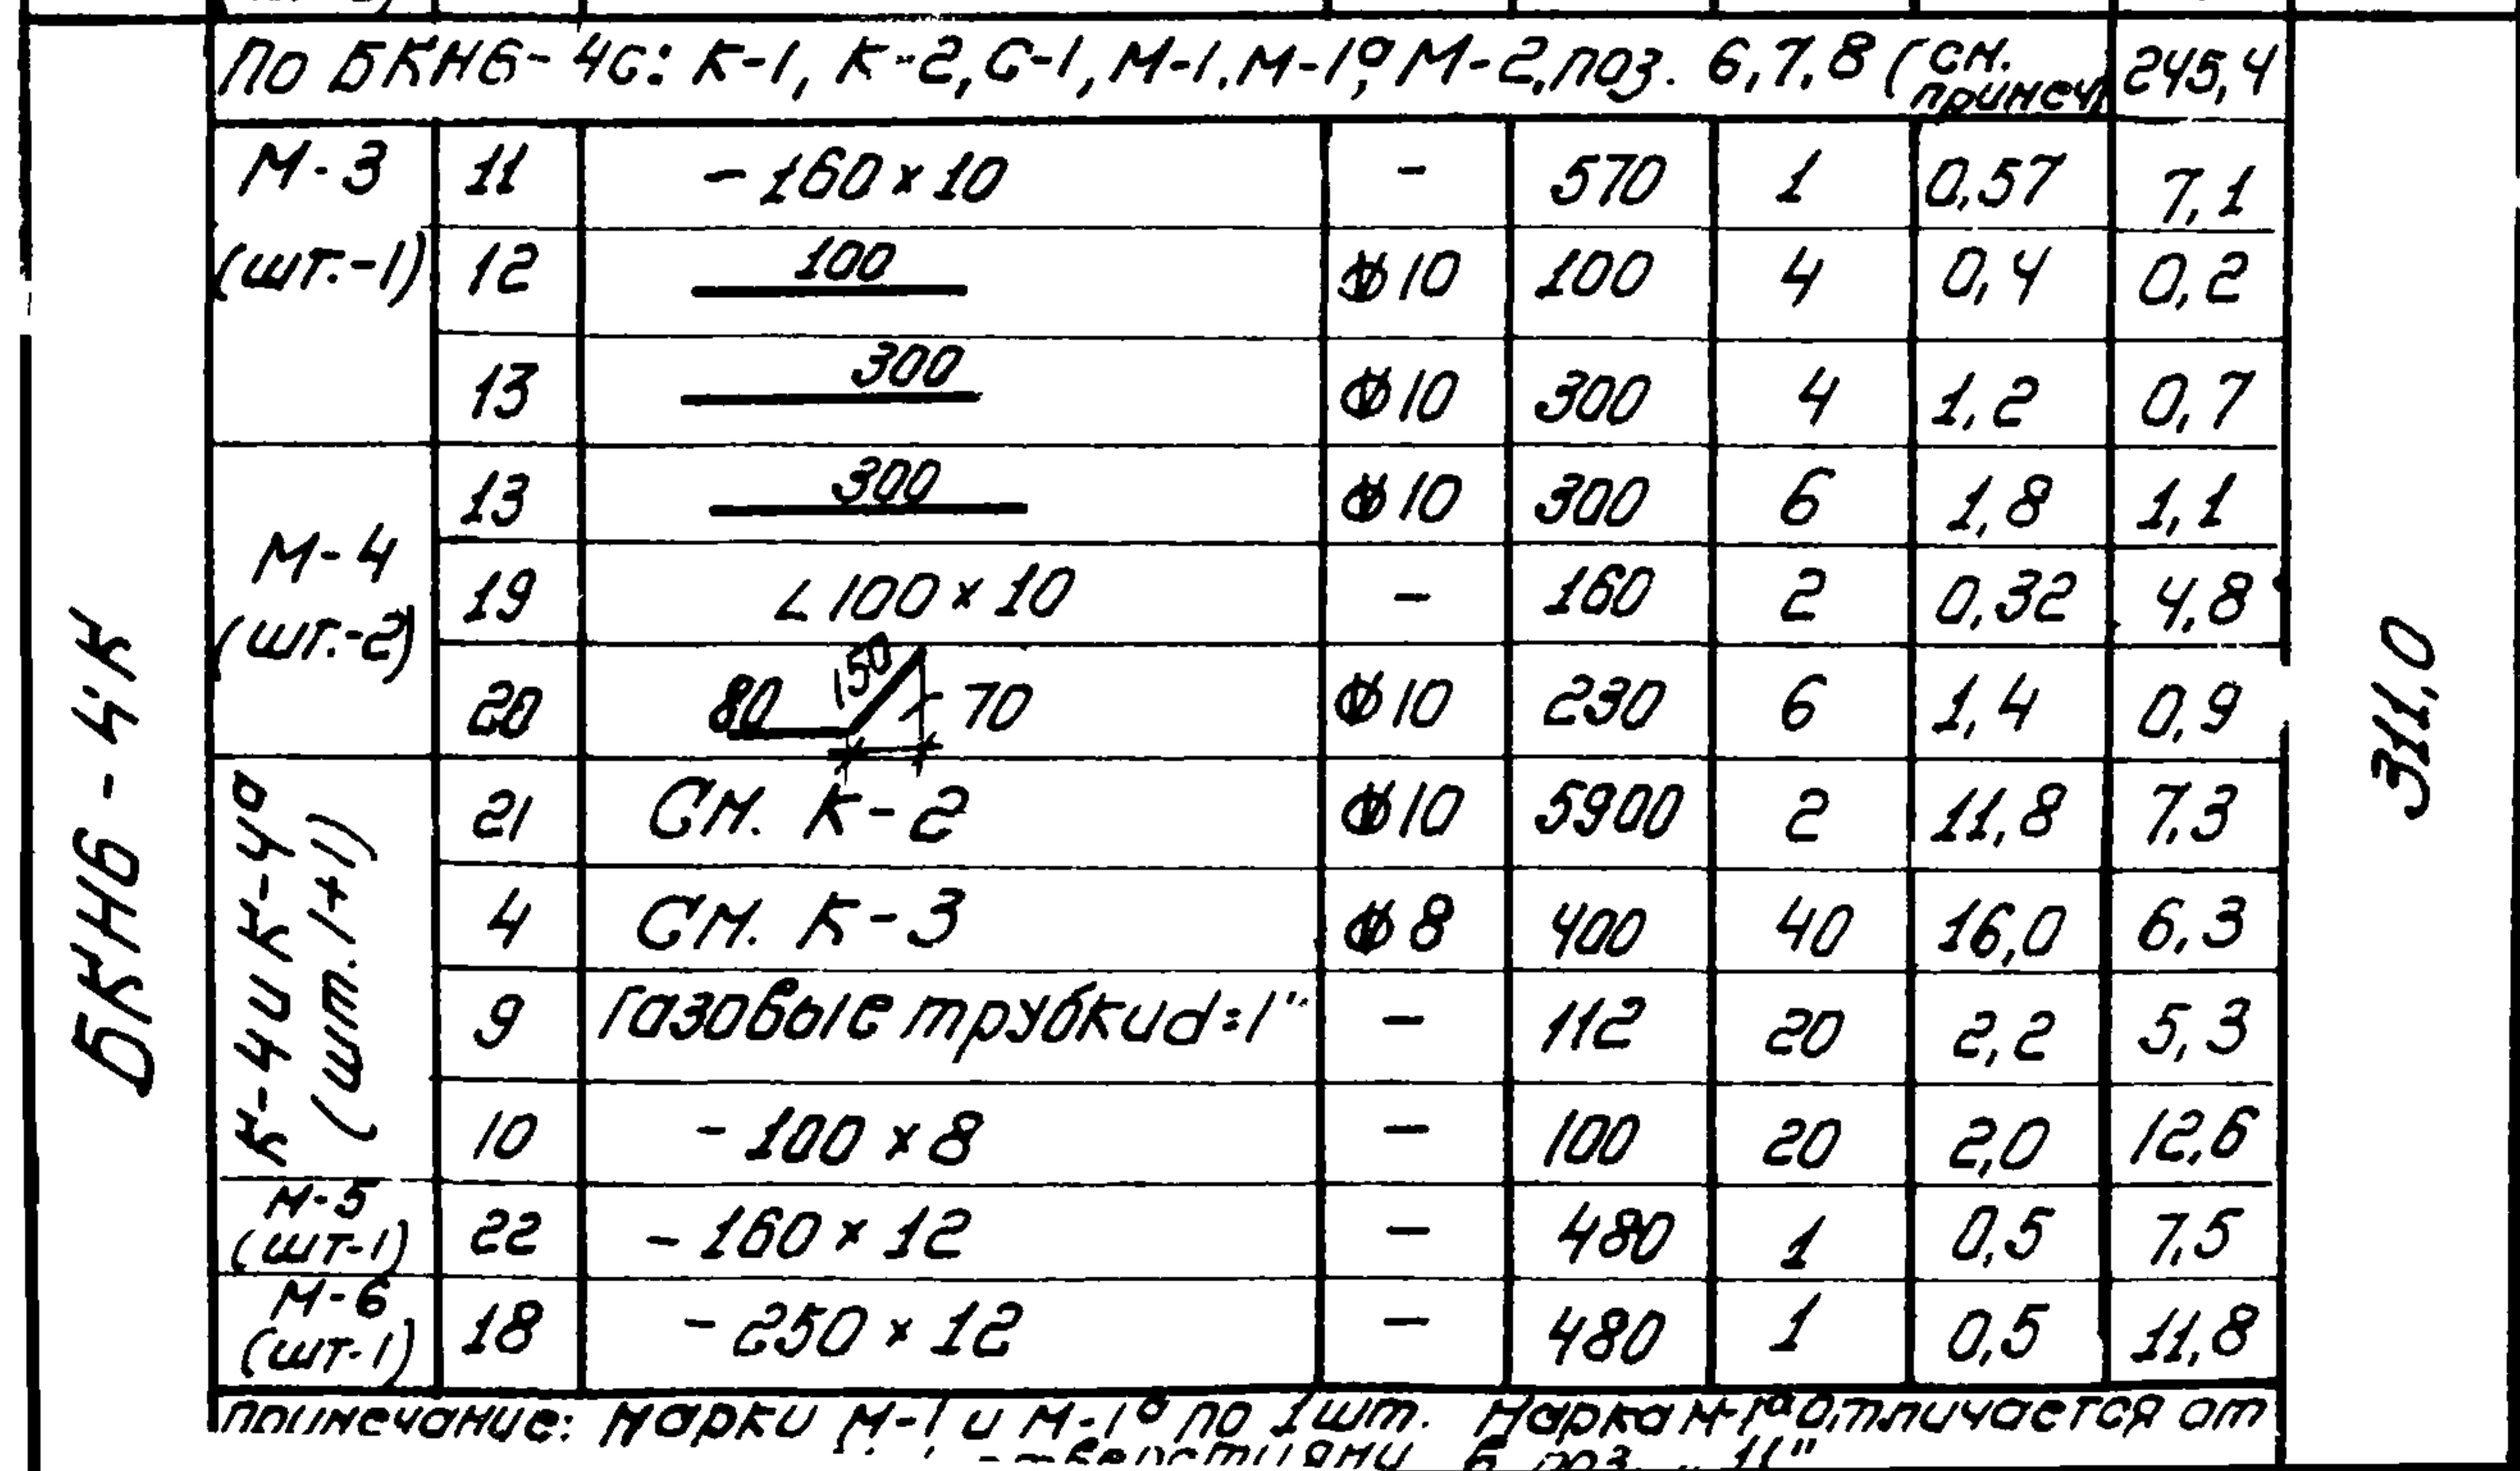 По БКН6-4с: К-1, К-2, С-1, М-1, М-1ª, М-2, поз. 6,7,8 (см. примеч. 245,4
М-3 (шт.-1) 11 - 160 × 10 - 570 1 0,57 7,1
12 100 ⌀10 100 4 0,4 0,2
13 300 ⌀10 300 4 1,2 0,7
М-4 (шт.-2) 13 300 ⌀10 300 6 1,8 1,1
19 ∠ 100 × 10 - 160 2 0,32 4,8
20 80 150 70 ⌀10 230 6 1,4 0,9
К-4 и К-4ª (шт. 1+1) 21 См. К-2 ⌀10 5900 2 11,8 7,3
4 См. К-3 ⌀8 400 40 16,0 6,3
9 Газовые трубки d=1" - 112 20 2,2 5,3
10 - 100 × 8 - 100 20 2,0 12,6
М-5 (шт-1) 22 - 160 × 12 - 480 1 0,5 7,5
М-6 (шт-1) 18 - 250 × 12 - 480 1 0,5 11,8
БКН6-4к
311,0
Примечание: Марки М-1 и М-1ª по 1шт. Марка М-1ª отличается от